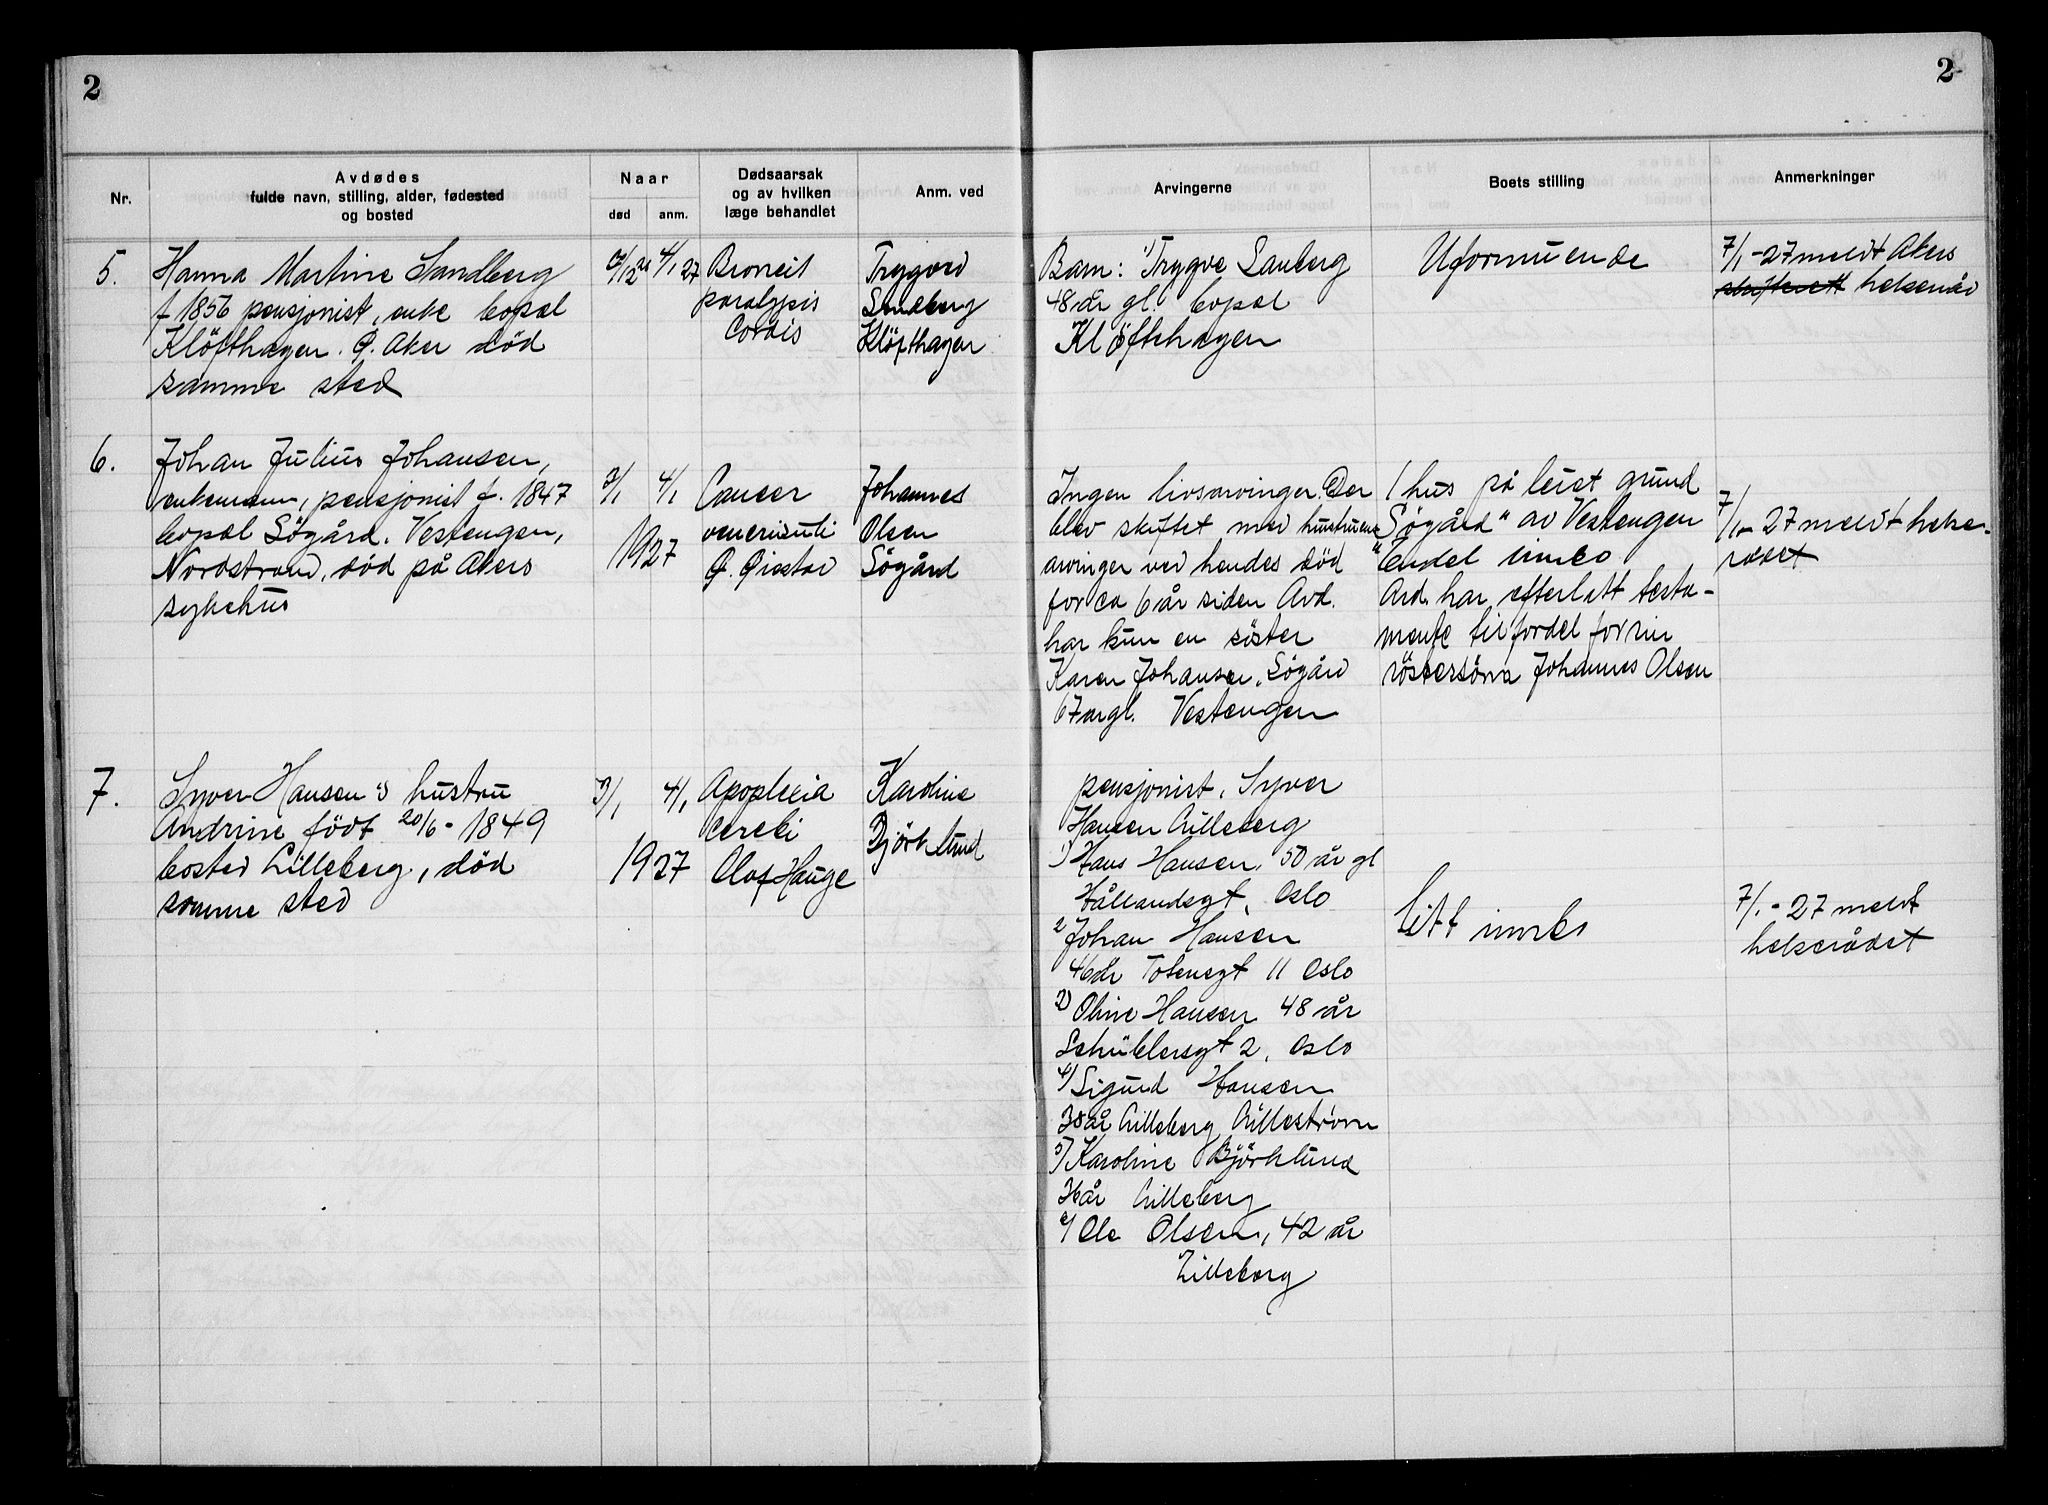 2
2
Nr.
Avdødes
fulde navn, stilling, alder, fødested
og bosted
Naar
død
anm.
Dødsaarsak
og av hvilken
læge behandlet
Anm. ved
Arvingerne
Boets stilling
Anmerkninger
5.
Hanna Martine Sandberg
f 1856 pensjonist, enke bopæl
Klöfthagen. Ø. Aker død
samme sted
4/1 27
paralysis
Cordis
Trygve
Klöfthagen
Barn: 1) Trygve Sanberg
48 år gl. bopæl
Kløfthagen
Uformuende
7/1-27 meldt Akers
skifterett helseråd
6.
Johan Julius Johansen,
enkemann, pensjonist f. 1847
bopæl Sögård. Vestengen,
Nordstrand, död på Akers
sykehus
4/1
1927
Cancer
Johannes
Olsen
Sögård
Ingen livsarvinger. Der
blev skiftet med hustruens
arvinger ved hendes död
for ca 6 år siden Avd.
har kun en söster
Karen Johansen, Sögård
67 årgl. Vestengen
1 hus på leiet grund
"Sögård" av Vestengen
Endel innbo
Avd. har efterlatt testa-
mente til fordel for sin
söstersönn Johannes Olsen
7/1-27 meldt helse-
rådet
7.
Syver Hansen's hustru
Andrine födt 20/6-1849
bosted Lilleberg, död
samme sted
3/1
4/1
1927
Apoplexia
cerebi
Olaf Hauge
Karoline
Björklund
pensjonist, Syver
Hansen Lilleberg
1) Hans Hansen, 50 år gl
Oslo
2 Johan Hansen
46 år Totensgt 11 Oslo
Oline Hansen 48 år
Schüblersgt 2, Oslo
4/ Sigurd Hansen
38 år Lilleberg Lillestrøm
5/ Karoline Björklund
36 år Lilleberg
6/ Ole Olsen, 42 år
Lilleberg
litt innbo
7/1-27 meldt
helserådet